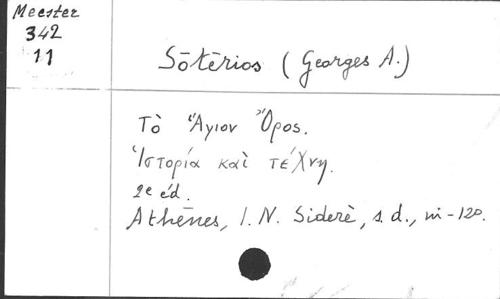 Meester
342
11
Sōtērios (Georges A.)
Τὸ Ἅγιον Ὄρος.
Ἱστορία καὶ τέχνη.
2e éd.
Athēnes, I. N. Siderè, s.d., in-120.